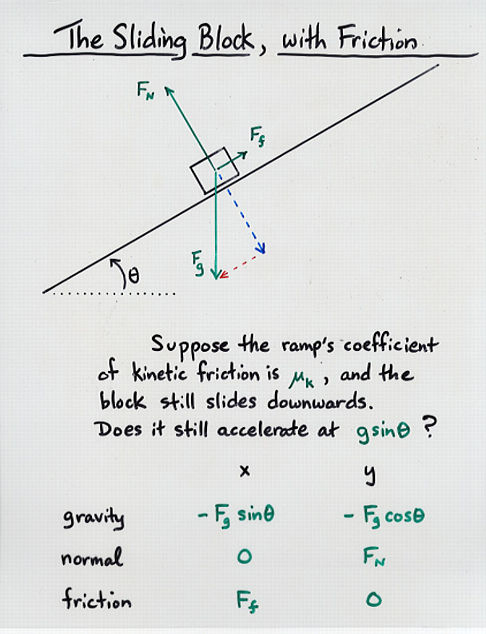 The Sliding Block, with Friction
F_N
F_f
F_g
θ
Suppose the ramp's coefficient
of kinetic friction is μ_k, and the
block still slides downwards.
Does it still accelerate at g sinθ ?
x y
gravity - F_g sinθ - F_g cosθ
normal 0 F_N
friction F_f 0